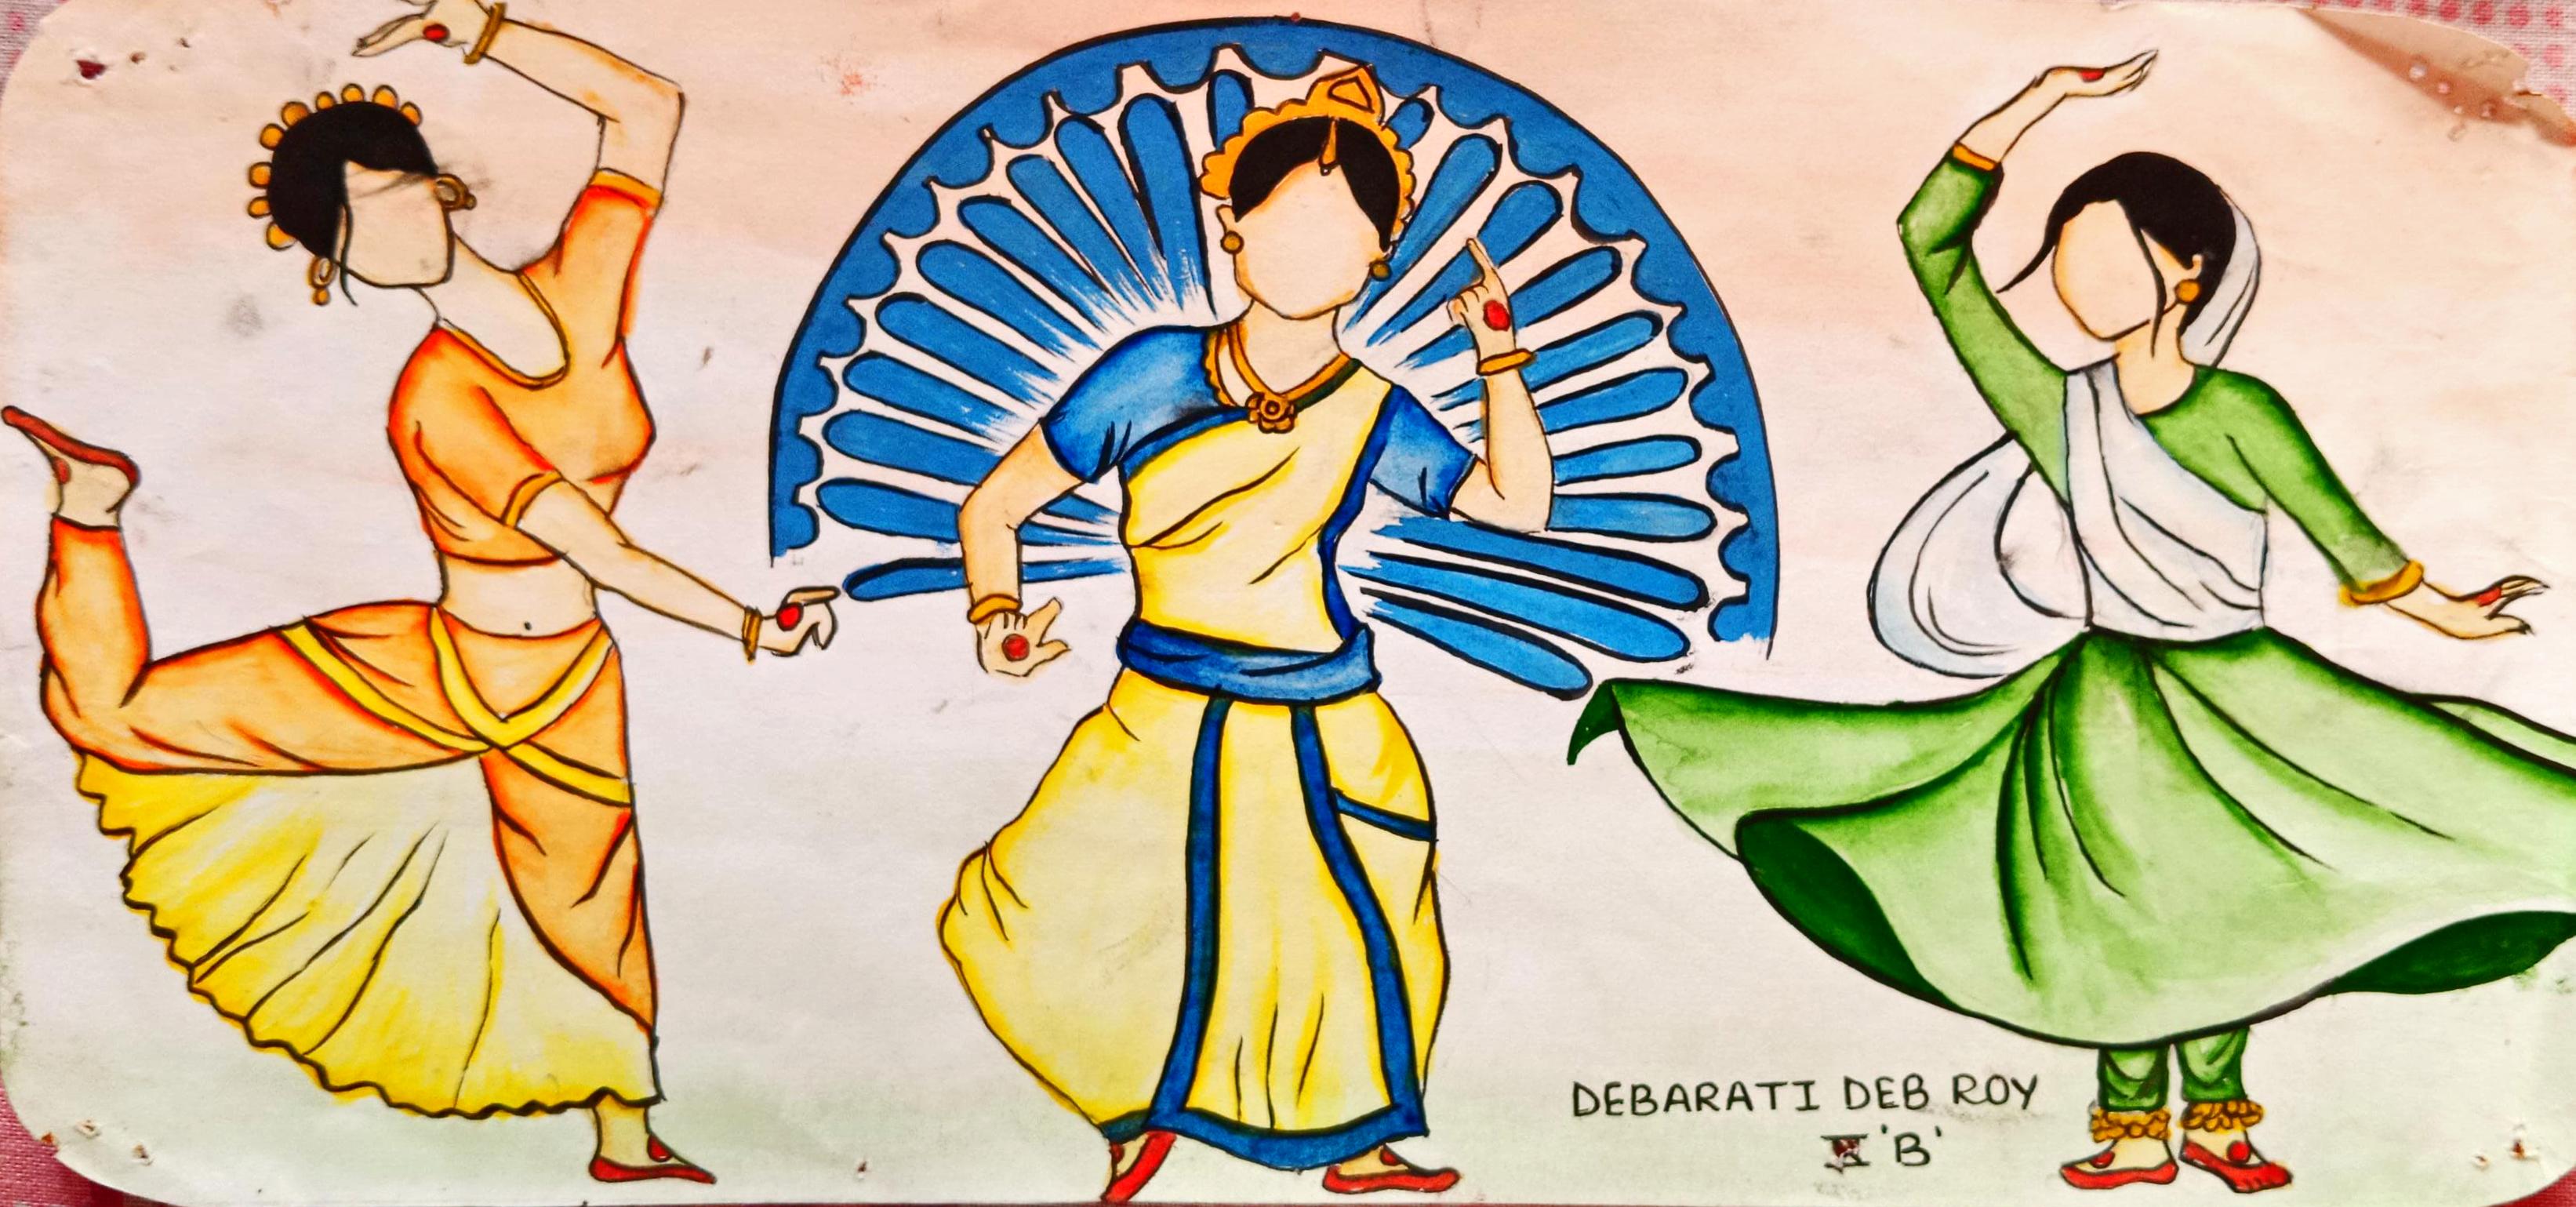 DEBARATI DEB ROY
X 'B'